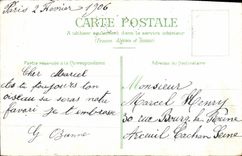 Paris 2 Février 1906
CARTE POSTALE
A utiliser seulement dans le service intérieur
(France, Algérie et Tunisie)
Partie réservée à la Correspondance
Adresse du Destinataire
Cher Marcel
toujours ton
oiseau tu seras notre
favori Je t'embrasse
Monsieur
Marcel Henry
30 rue Bourg la Reine
Arcueil Cachan Seine